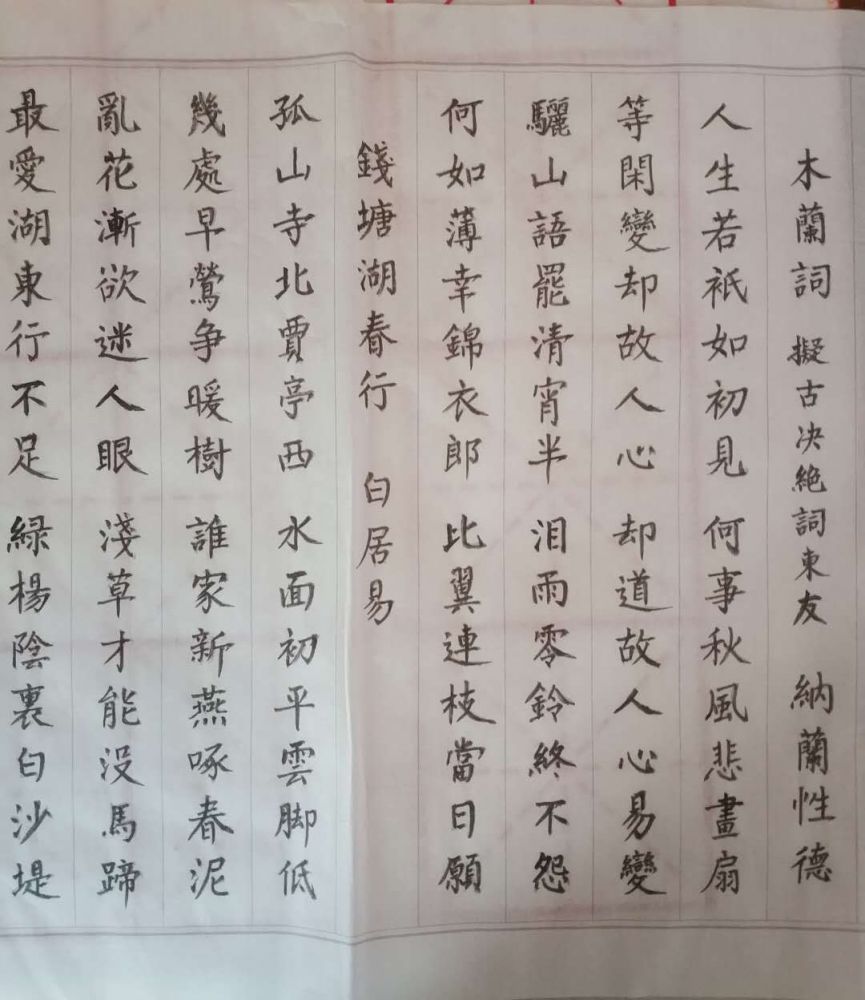 木蘭詞 擬古决絶詞柬友 納蘭性德
人生若衹如初見 何事秋風悲畫扇
等閑變却故人心 却道故人心易變
驪山語罷清宵半 泪雨零鈴終不怨
何如薄幸錦衣郎 比翼連枝當日願
錢塘湖春行 白居易
孤山寺北賈亭西 水面初平雲脚低
幾處早鶯争暖樹 誰家新燕啄春泥
亂花漸欲迷人眼 淺草才能没馬蹄
最愛湖東行不足 緑楊陰裏白沙堤